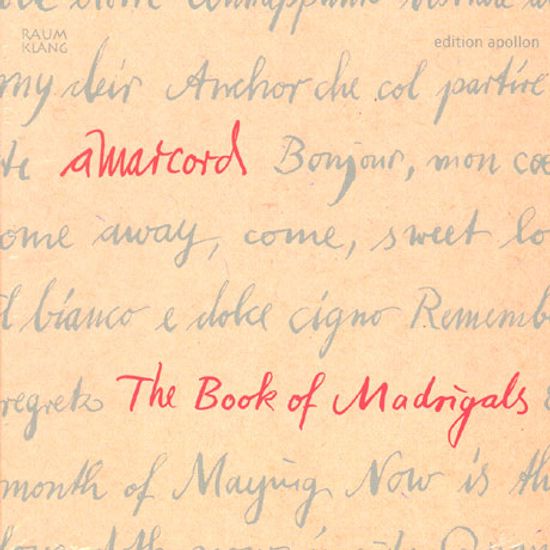 RAUM
KLANG
edition apollon
my deir Anchor che col partire
te amarcord Bonjour, mon coe
ome away, come, sweet lo
l bianco e dolce cigno Rememb
regretz The Book of Madrigals
month of Maying Now is th